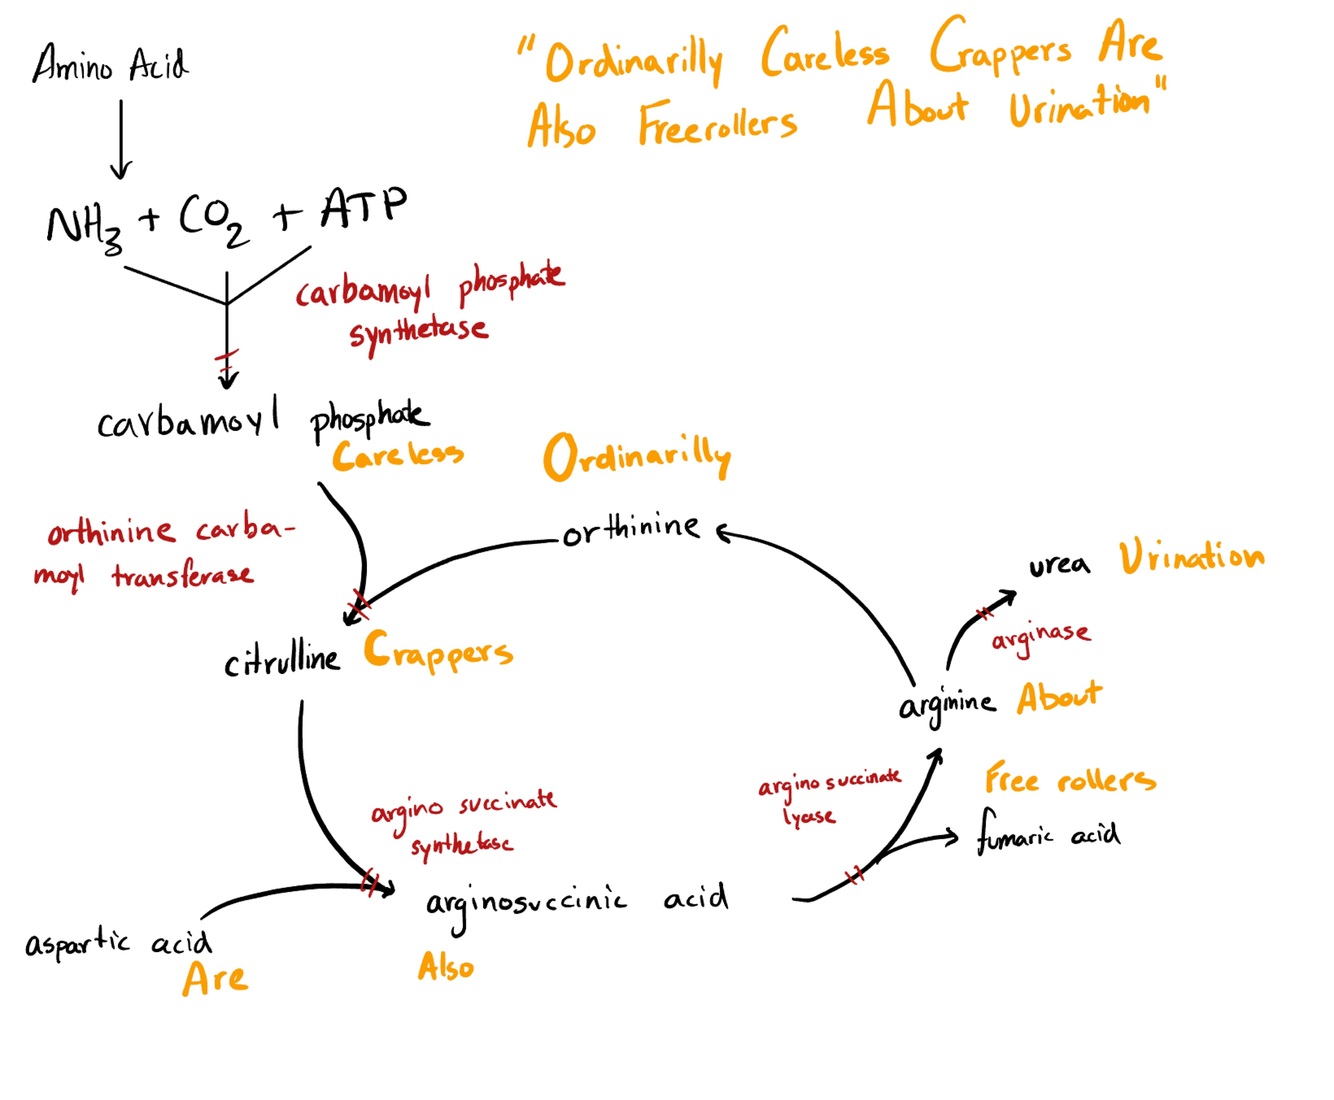 Amino Acid
"Ordinarilly Careless Crappers Are
Also Freerollers About Urination"
NH3 + CO2 + ATP
carbamoyl phosphate
synthetase
carbamoyl phosphate
Careless
Ordinarilly
orthinine carba-
moyl transferase
orthinine
urea Urination
arginase
citrulline Crappers
arginine About
argino succinate
synthetase
argino succinate
lyase
Free rollers
fumaric acid
arginosuccinic acid
Also
aspartic acid
Are